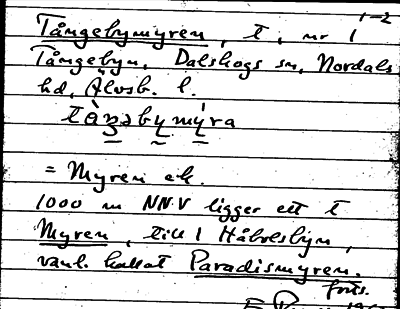 1-2
Tångebymyren, t, nr 1
Tångebyn, Dalskogs sn, Nordals
hd, Älvsb. l.
= Myren ek.
1000 m NNV ligger ett t
Myren, till 1 Håbolsbyn,
vanl. kallat Paradismyren.
forts.